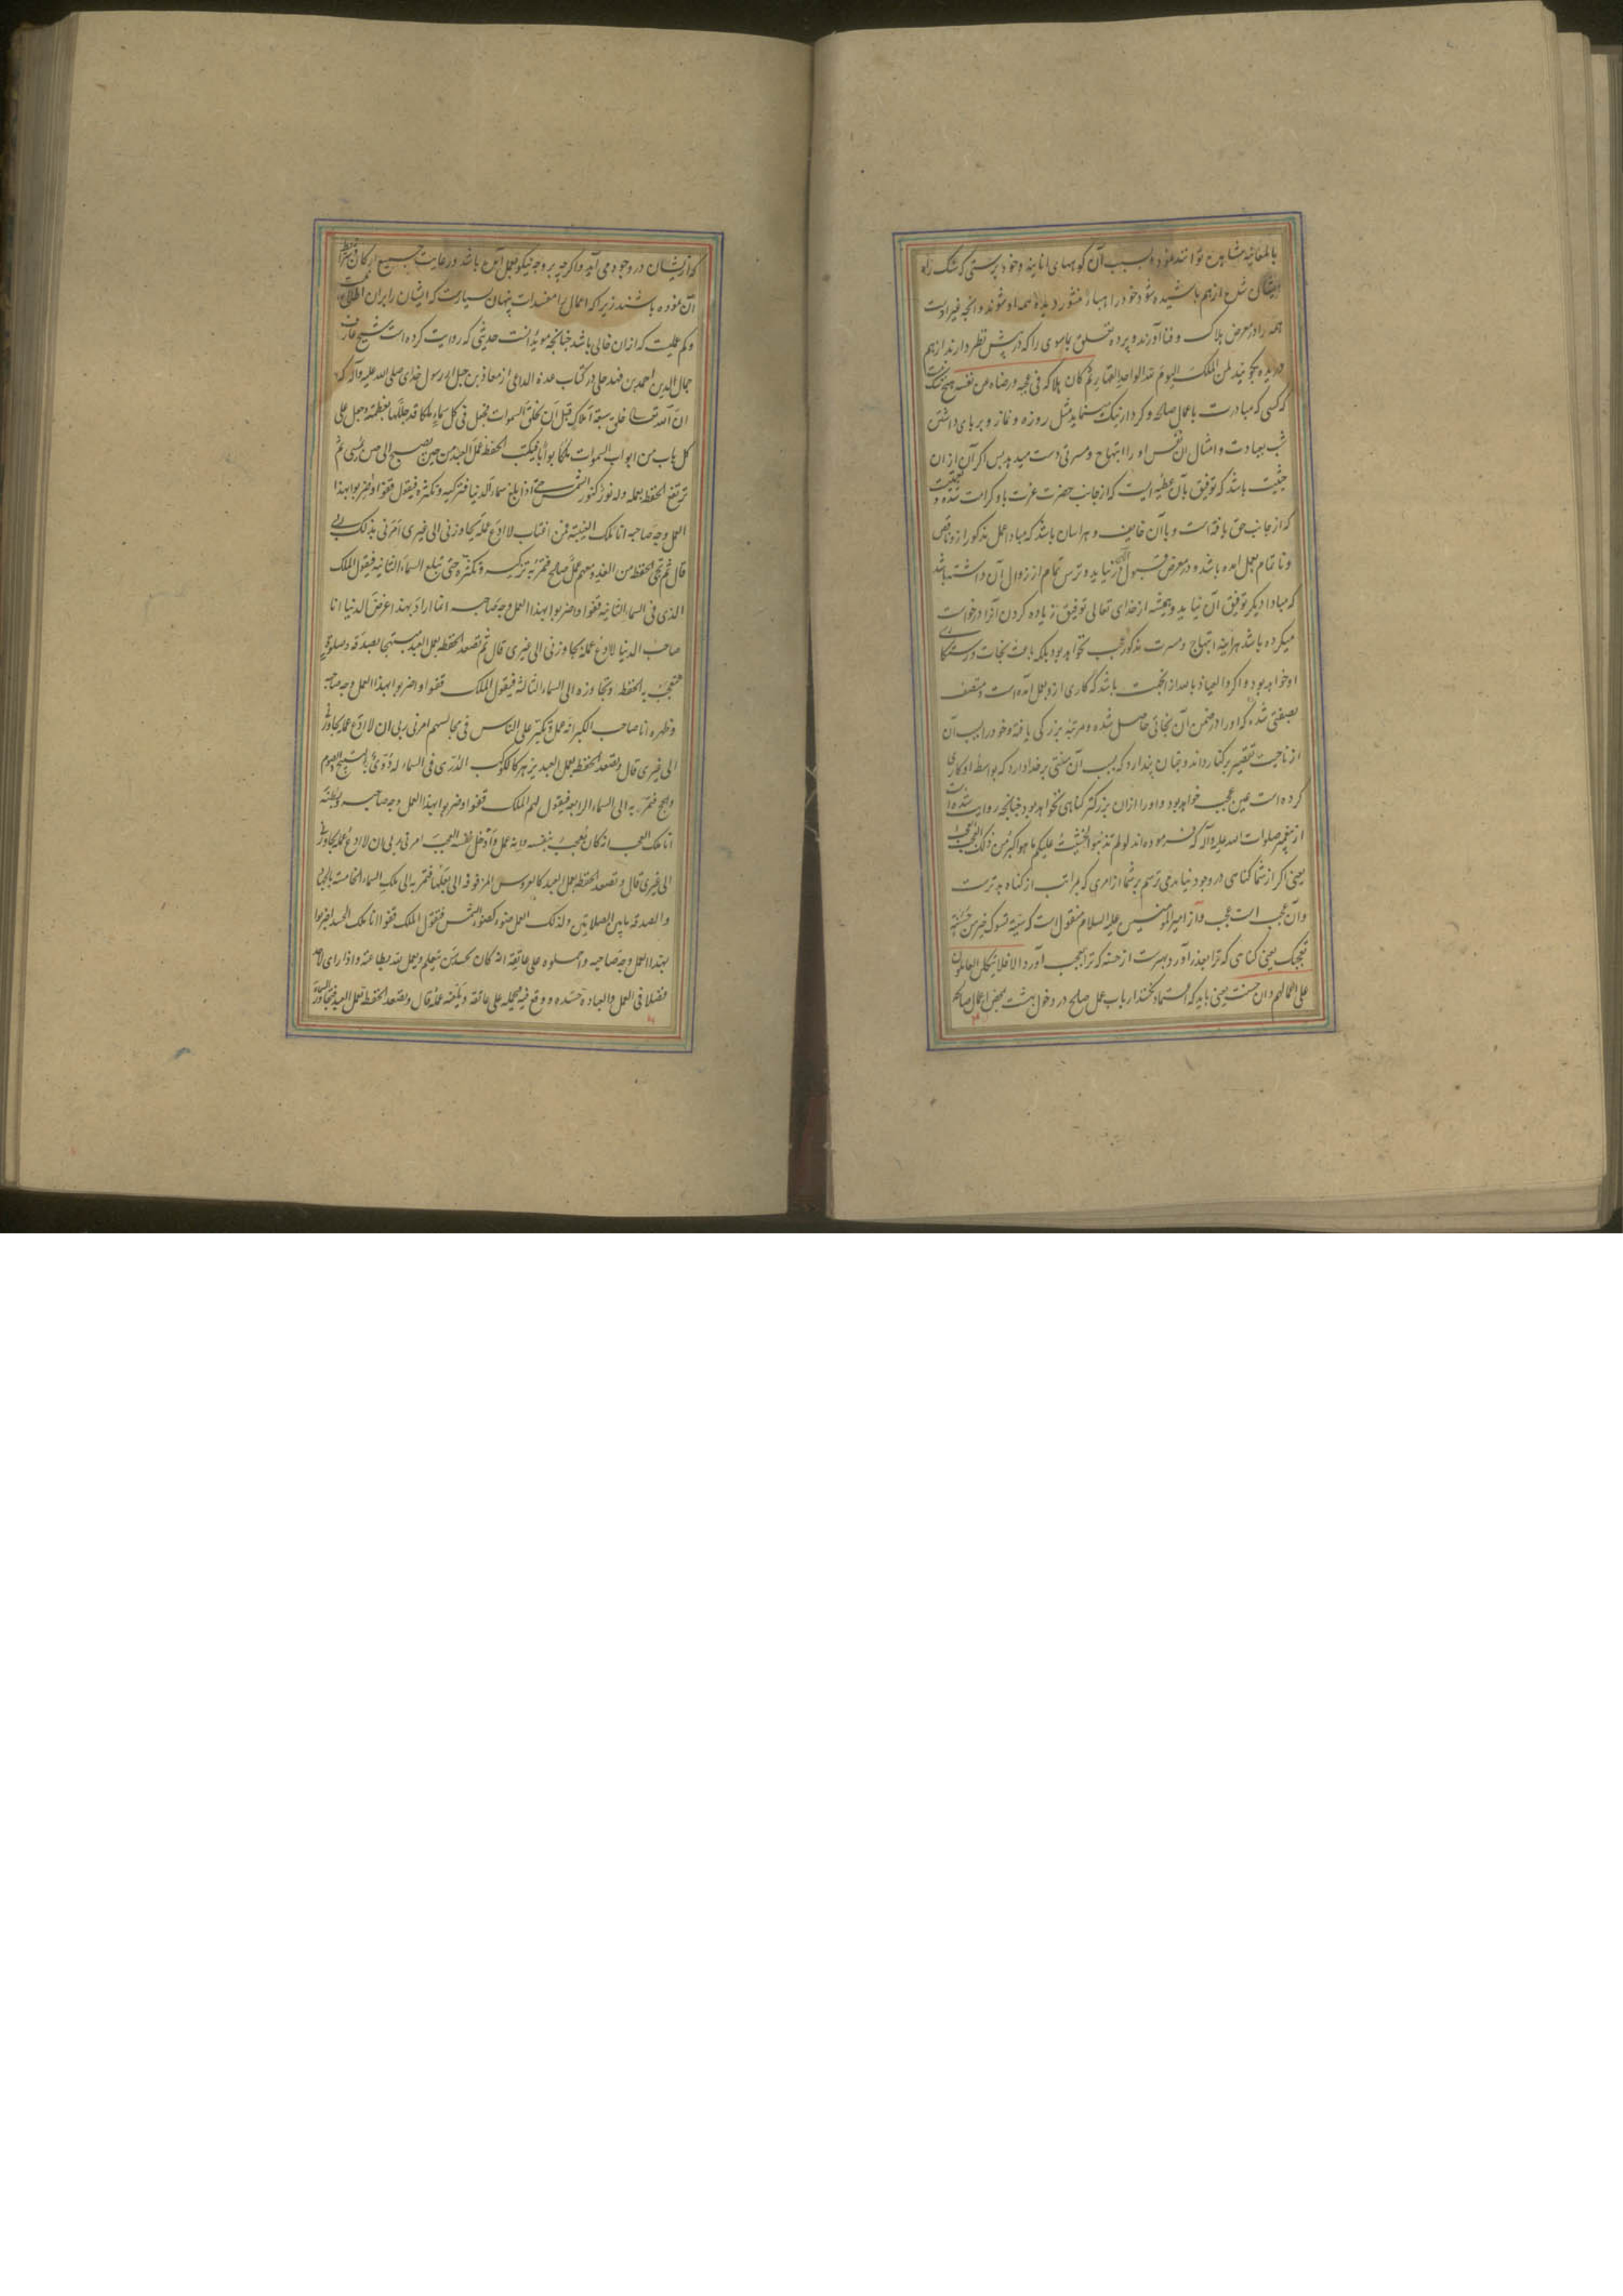 بالمعاینه مشاهده توانند نمود و بسبب آن کوههای انانیة و خود پرستی که سنک راه
ایشان شده از هم پاشیده شود و خود را هباء منثور دیده همه او شوند و آنچه غیر اوست
همه را در معرض هلاک و فنا آورند و پرده تعلق بماسوی را که در پیش نظر دارند از هم
دریده بگویند لمن الملک الیوم لله الواحد القهار ثم کان هلاکه فی عجبه و رضاه من نفسه هیچ شک نیست
که کسی که مبادرت باعمال صالحه و کردار نیک مینماید مثل روزه و نماز و برپای داشتن
شب بعبادت و امثال آن نفس او را ابتهاج و مسرتی دست میدهد پس اگر آن از ان
حیثیت باشد که توفیق بآن عطیه ایست که از جانب حضرت عزت باو کرامت شده و نعمتیست
که از جانب حق یافته است و با آن خایف و هراسان باشد که مبادا عمل مذکور از و ناقص
و ناتمام بعمل امده باشد و در معرض قبول در نیاید و ترس تمام از زوال آن داشته باشد
که مبادا دیگر توفیق آن نیابد و همیشه از خدای تعالی توفیق زیاده کردن آنرا درخواست
میکرده باشد هراینه ابتهاج و مسرت مذکور عجب نخواهد بود بلکه باعث نجات و رستکاری
او خواهد بود و اکر والعیاذ بالله از انجهت باشد که کاری از و بعمل آمده است و متصف
بصفتی شده که او را در ضمن آن نجاتی حاصل شده و مرتبه بزرکی یافته و خود را بسبب آن
از ناحیت تقصیر برکنار داند و چنان پندارد که بسبب آن منتی بر خدا دارد که بواسطه او کاری
کرده است عین عجب خواهد بود و او را ازان بزرکتر کناهی نخواهد بود چنانچه روایت شده است
از پیغمبر صلوات الله علیه و آله که فرموده اند لو لم تذنبوا لخشیت علیکم ما هو اکبر من ذلک العجب العجب
یعنی اکر از شما کناهی در وجود نیاید می ترسم بر شما از امری که بمراتب از کناه بدترست
و آن عجب است عجب و از امیر المومنین علیه السلام منقول است که سیئة تسوک خیر من حسنة
تعجبک یعنی کناهی که ترا بعذر آورد بهترست از حسنه که ترا بعجب آورد الا فلا یتکل العاملون
علی اعمالهم و ان حسنت یعنی باید که اعتماد نکنند ارباب عمل صالح در دخول بهشت بمحض اعمال صالحه
که ازیشان در وجود می آید و اکرچه بر وجه نیکو بعمل آمده باشد و رعایت جمیع ارکان و شرایط
آن نموده باشند زیرا که اعمال را مفسدات پنهان بسیارست که ایشان را بران اطلاع نیست
و کم عملیست که ازان خالی باشد چنانچه موید آنست حدیثی که روایت کرده است شیخ عارف
جمال الدین احمد بن فهد حلی در کتاب عدة الداعی از معاذ بن جبل از رسول خدای صلی الله علیه و آله که
ان الله تعالی خلق سبعة املاک قبل ان یخلق السموات فجعل فی کل سماء ملکا قد جللها بعظمته و جعل علی
کل باب من ابواب السموات ملکا بوابا فیکتب الحفظة عمل العبد من حین یصبح الی حین یمسی ثم
ترتفع الحفظة بعمله و له نور کنور الشمس حتی اذا بلغ سماء الدنیا فتزکیه و تکثره فیقول قفوا و اضربوا بهذا
العمل وجه صاحبه انا ملک الغیبة فمن اغتاب لا ادع عمله یجاوزنی الی غیری امرنی بذلک ربی
قال ثم تجی الحفظة من الغد و معهم عمل صالح فتمر به تزکیه و تکثره حتی تبلغ السماء الثانیة فیقول الملک
الذی فی السماء الثانیة قفوا و اضربوا بهذا العمل وجه صاحبه انما اراد بهذا عرض الدنیا انا
صاحب الدنیا لا ادع عمله یجاوزنی الی غیری قال ثم تصعد الحفظة بعمل العبد مبتهجا بصدقة و صلوة
فتعجب به الحفظة و تجاوزه الی السماء الثالثة فیقول الملک قفوا و اضربوا بهذا العمل وجه صاحبه
و ظهره انا صاحب الکبر انه عمل و تکبر علی الناس فی مجالسهم امرنی ربی ان لا ادع عمله یجاوزنی
الی غیری قال و تصعد الحفظة بعمل العبد یزهر کالکوکب الدری فی السماء له دوی بالتسبیح و الصوم
و الحج فتمر به الی السماء الرابعة فیقول لهم الملک قفوا و اضربوا بهذا العمل وجه صاحبه و بطنه
انا ملک العجب انه کان یعجب بنفسه و انه عمل و ادخل نفسه العجب امرنی ربی ان لا ادع عمله یجاوزنی
الی غیری قال و تصعد الحفظة بعمل العبد کالعروس المزفوفة الی بعلها فتمر به الی ملک السماء الخامسة بالجهاد
و الصدقة ما بین الصلاتین و لذلک العمل ضوء کضوء الشمس فیقول الملک قفوا انا ملک الحسد اضربوا
بهذا العمل وجه صاحبه و احملوه علی عاتقه انه کان یحسد من یتعلم و یعمل لله بطاعته و اذا رای لاحد
فضلا فی العمل و العبادة حسده و وقع فیه فیحمله علی عاتقه و یلعنه عمله قال و تصعد الحفظة بعمل العبد فیتجاوز السماء